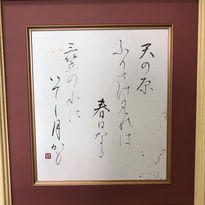 天の原
ふりさけ見れは
春日なる
三笠の山に
いてし月かも